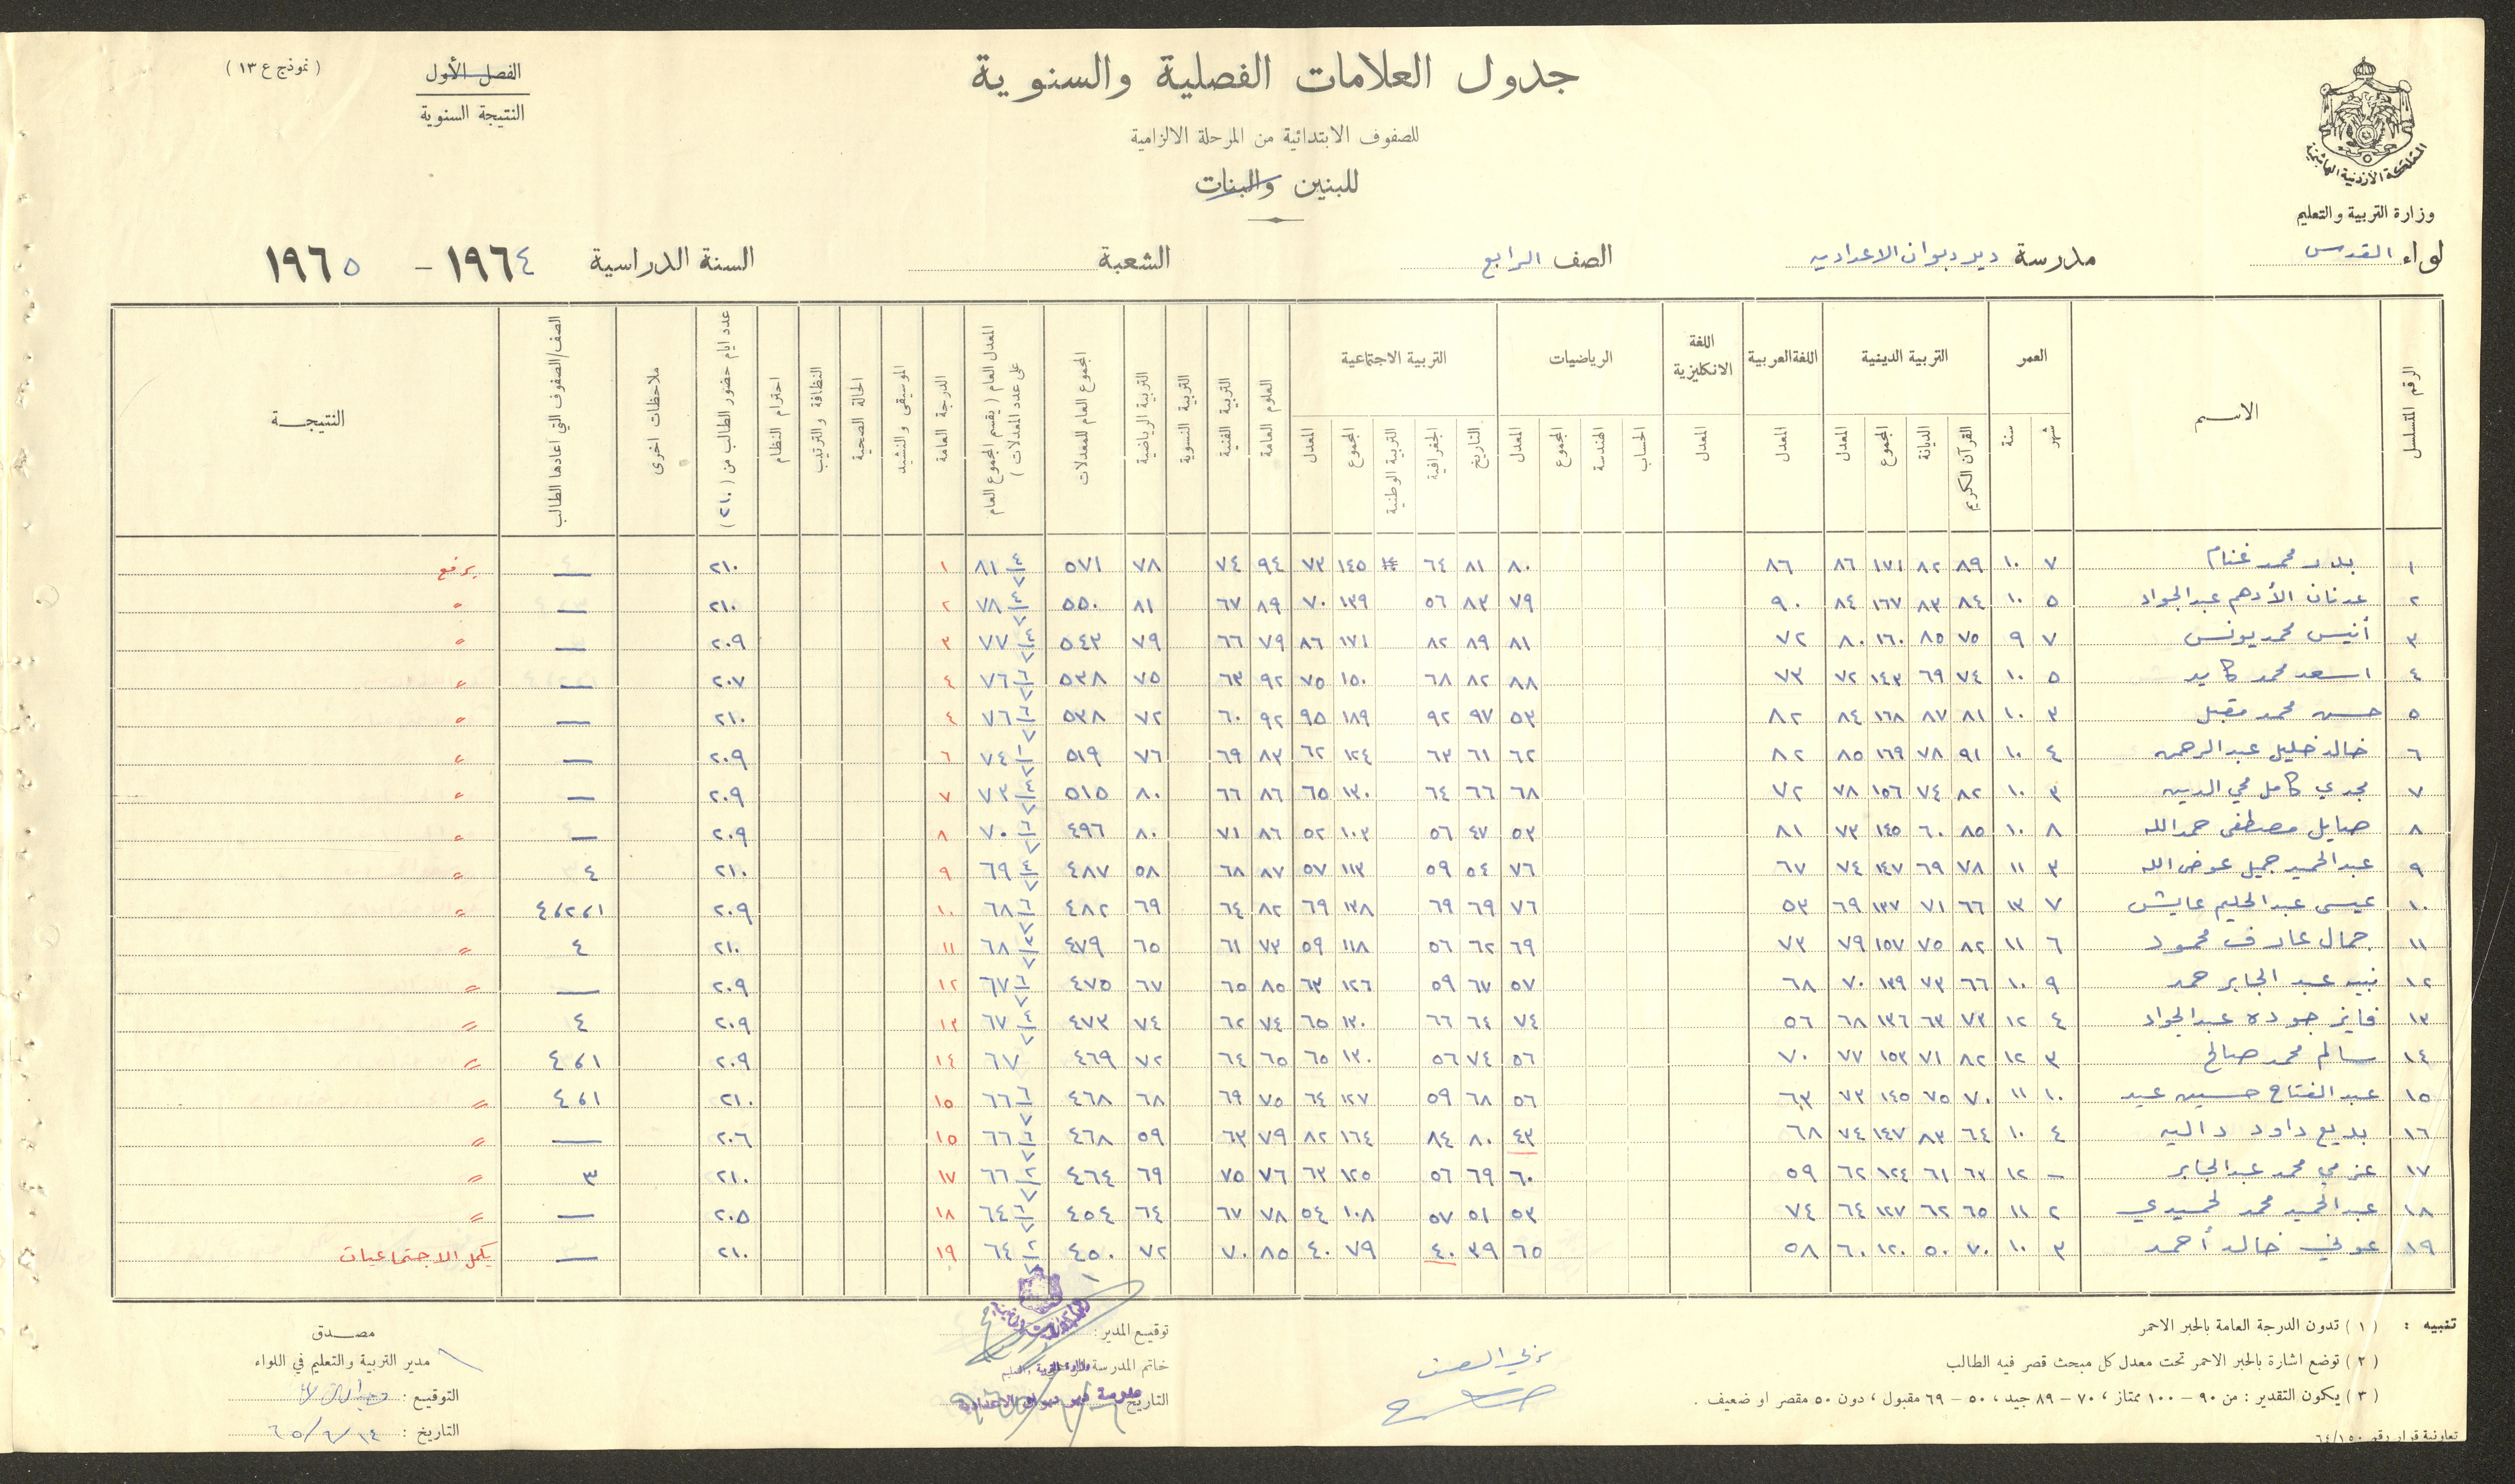 جدول العلامات الفصلية والسنوية
للصفوف الابتدائية من المرحلة الالزامية
للبنين والبنات
الفصل الأول
النتيجة السنوية
( نموذج ع ١٣ )
المملكة الأردنية الهاشمية
وزارة التربية والتعليم
لواء القدس مدرسة دير دبوان الاعدادية الصف الرابع الشعبة السنة الدراسية ١٩٦٤ – ١٩٦٥
الرقم المتسلسل | الاسم | العمر | شهر | سنة | التربية الدينية | القرآن الكريم | الديانة | المجموع | المعدل | اللغة العربية | المعدل | اللغة الانكليزية | المعدل | الرياضيات | الحساب | الهندسة | المجموع | المعدل | التربية الاجتماعية | التاريخ | الجغرافية | التربية الوطنية | المجموع | المعدل | العلوم العامة | التربية الفنية | التربية النسوية | التربية الرياضية | المجموع العام للمعدلات | المعدل العام ( يقسم المجموع العام على عدد المعدلات ) | الدرجة العامة | الموسيقى والنشيد | الحالة الصحية | النظافة والترتيب | احترام النظام | عدد ايام حضور الطالب من ( ٢١٠ ) | ملاحظات اخرى | الصف/الصفوف التي اعادها الطالب | النتيجة
١ محمد غنام ٧ ١٠ ٨٩ ٨٢ ١٧١ ٨٦ ٨٦ ٨٠ ٨١ ٦٤ ١٤٥ ٧٣ ٩٤ ٧٤ ٧٨ ٥٧١ ٨١ ٤/٧ ١ ٢١٠ — يرفع
٢ عدنان الأدهم عبد الجواد ٥ ١٠ ٨٤ ٨٣ ١٦٧ ٨٤ ٩٠ ٧٩ ٨٣ ٥٦ ١٣٩ ٧٠ ٨٩ ٦٧ ٨١ ٥٥٠ ٧٨ ٤/٧ ٢ ٢١٠ — "
٣ أنيس محمد يونس ٧ ٩ ٧٥ ٨٥ ١٦٠ ٨٠ ٧٢ ٨١ ٨٩ ٨٢ ١٧١ ٨٦ ٧٩ ٦٦ ٧٩ ٥٤٣ ٧٧ ٤/٧ ٣ ٢٠٩ — "
٤ اسعد محمد كايد ٥ ١٠ ٧٤ ٦٩ ١٤٣ ٧٢ ٧٣ ٨٨ ٨٢ ٦٨ ١٥٠ ٧٥ ٩٢ ٦٣ ٧٥ ٥٣٨ ٧٦ ٦/٧ ٤ ٢٠٧ — "
٥ حسن محمد مقبل ٣ ١٠ ٨١ ٨٧ ١٦٨ ٨٤ ٨٢ ٥٣ ٩٧ ٩٢ ١٨٩ ٩٥ ٩٢ ٦٠ ٧٢ ٥٣٨ ٧٦ ٦/٧ ٤ ٢١٠ — "
٦ خالد خليل عبد الرحمن ٤ ١٠ ٩١ ٧٨ ١٦٩ ٨٥ ٨٢ ٦٢ ٦١ ٦٣ ١٢٤ ٦٢ ٨٣ ٦٩ ٧٦ ٥١٩ ٧٤ ١/٧ ٦ ٢٠٩ — "
٧ مجدي كامل محي الدين ٣ ١٠ ٨٢ ٧٤ ١٥٦ ٧٨ ٧٢ ٦٨ ٦٦ ٦٤ ١٣٠ ٦٥ ٨٦ ٦٦ ٨٠ ٥١٥ ٧٣ ٤/٧ ٧ ٢٠٩ — "
٨ صايل مصطفى حمد الله ٨ ١٠ ٨٥ ٦٠ ١٤٥ ٧٣ ٨١ ٥٣ ٤٧ ٥٦ ١٠٣ ٥٢ ٨٦ ٧١ ٨٠ ٤٩٦ ٧٠ ٦/٧ ٨ ٢٠٩ — "
٩ عبد الحميد جميل عوض الله ٣ ١١ ٧٨ ٦٩ ١٤٧ ٧٤ ٦٧ ٧٦ ٥٤ ٥٩ ١١٣ ٥٧ ٨٧ ٦٨ ٥٨ ٤٨٧ ٦٩ ٤/٧ ٩ ٢١٠ ٤ "
١٠ عيسى عبد الحليم عايش ٧ ١٣ ٦٦ ٧١ ١٣٧ ٦٩ ٥٣ ٧٦ ٦٩ ٦٩ ١٣٨ ٦٩ ٨٢ ٦٤ ٦٩ ٤٨٢ ٦٨ ٦/٧ ١٠ ٢٠٩ ١،٢،٤ "
١١ جمال عارف محمود ٦ ١١ ٨٢ ٧٥ ١٥٧ ٧٩ ٧٣ ٦٩ ٦٢ ٥٦ ١١٨ ٥٩ ٧٣ ٦١ ٦٥ ٤٧٩ ٦٨ ٣/٧ ١١ ٢١٠ ٤ "
١٢ نبيه عبد الجابر حمد ٩ ١٠ ٦٦ ٧٣ ١٣٩ ٧٠ ٦٨ ٥٧ ٦٧ ٥٩ ١٢٦ ٦٣ ٨٥ ٦٥ ٦٧ ٤٧٥ ٦٧ ٦/٧ ١٢ ٢٠٩ — "
١٣ فايز جوده عبد الجواد ٤ ١٢ ٧٣ ٦٣ ١٣٦ ٦٨ ٥٦ ٧٤ ٦٤ ٦٦ ١٣٠ ٦٥ ٧٤ ٦٢ ٧٤ ٤٧٣ ٦٧ ٤/٧ ١٣ ٢٠٩ ٤ "
١٤ سالم محمد صالح ٣ ١٢ ٨٢ ٧١ ١٥٣ ٧٧ ٧٠ ٥٦ ٧٤ ٥٦ ١٣٠ ٦٥ ٦٥ ٦٤ ٧٢ ٤٦٩ ٦٧ ١٤ ٢٠٩ ١،٤ "
١٥ عبد الفتاح حسين عيد ١٠ ١١ ٧٠ ٧٥ ١٤٥ ٧٣ ٦٣ ٥٦ ٦٨ ٥٩ ١٢٧ ٦٤ ٧٥ ٦٩ ٦٨ ٤٦٨ ٦٦ ٦/٧ ١٥ ٢١٠ ١،٤ "
١٦ بديع داود داليه ٤ ١٠ ٦٤ ٨٣ ١٤٧ ٧٤ ٦٨ ٤٣ ٨٠ ٨٤ ١٦٤ ٨٢ ٧٩ ٦٣ ٥٩ ٤٦٨ ٦٦ ٦/٧ ١٥ ٢٠٦ — "
١٧ عزمي محمد عبد الجابر — ١٢ ٦٣ ٦١ ١٢٤ ٦٢ ٥٩ ٦٠ ٦٩ ٥٦ ١٢٥ ٦٣ ٧٦ ٧٥ ٦٩ ٤٦٤ ٦٦ ٢/٧ ١٧ ٢١٠ ٣ "
١٨ عبد الحميد محمد لحميدي ٢ ١١ ٦٥ ٦٢ ١٢٧ ٦٤ ٧٤ ٥٣ ٥١ ٥٧ ١٠٨ ٥٤ ٧٨ ٦٧ ٦٤ ٤٥٤ ٦٤ ٦/٧ ١٨ ٢٠٥ — "
١٩ عوني خالد أحمد ٣ ١٠ ٧٠ ٥٠ ١٢٠ ٦٠ ٥٨ ٦٥ ٣٩ ٤٠ ٧٩ ٤٠ ٨٥ ٧٠ ٧٢ ٤٥٠ ٦٤ ٢/٧ ١٩ ٢١٠ — يكمل الاجتماعيات
تنبيه : ( ١ ) تدون الدرجة العامة بالحبر الاحمر
( ٢ ) توضع اشارة بالحبر الاحمر تحت معدل كل مبحث قصر فيه الطالب
( ٣ ) يكون التقدير : من ٩٠ – ١٠٠ ممتاز ، ٧٠ – ٨٩ جيد ، ٥٠ – ٦٩ مقبول ، دون ٥٠ مقصر او ضعيف .
تعاونية قرار رقم ٦٤/١٥٠
مربي الصف
توقيع المدير :
خاتم المدرسة
التاريخ
مدرسة دير دبوان الاعدادية
مصدق
مدير التربية والتعليم في اللواء
التوقيع :
التاريخ : ١٤/٦/٦٥